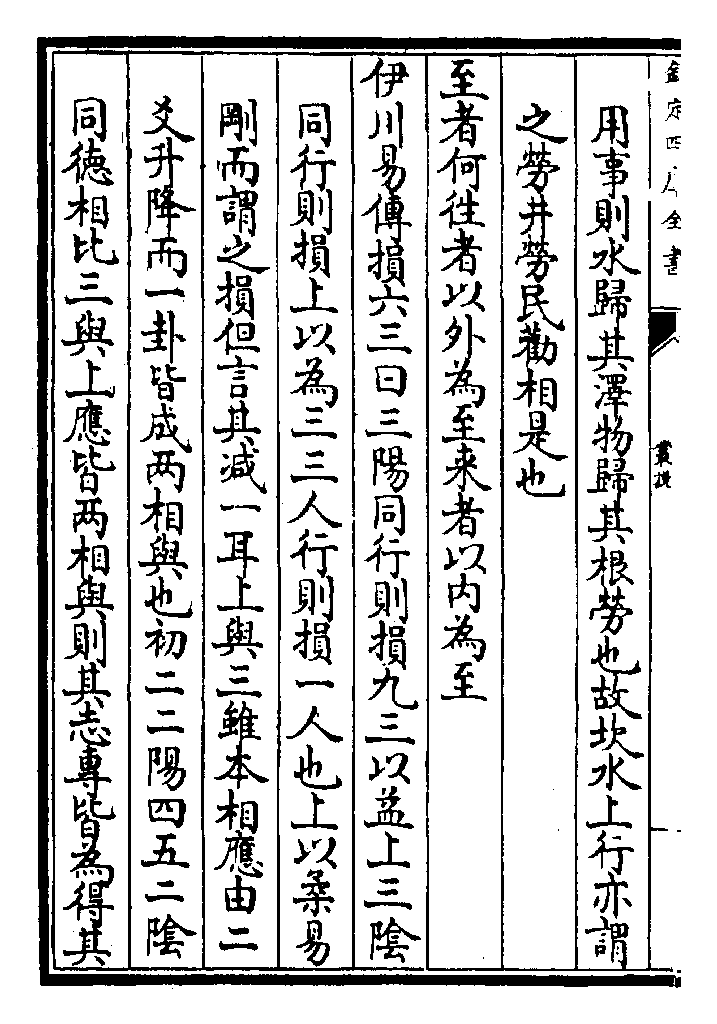 欽定四庫全書
叢説
用事則水歸其澤物歸其根勞也故坎水上行亦謂
之勞井勞民勸相是也
至者何徃者以外為至来者以内為至
伊川易傳損六三曰三陽同行則損九三以益上三陰
同行則損上以為三三人行則損一人也上以柔易
剛而謂之損但言其減一耳上與三雖本相應由二
爻升降而一卦皆成两相與也初二二陽四五二陰
同徳相比三與上應皆两相與則其志專皆為得其